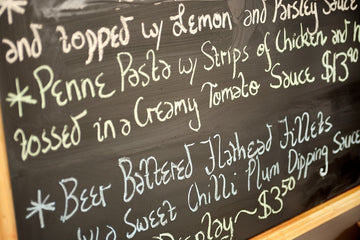 and topped w/ Lemon and Parsley Sauce
* Penne Pasta w/ Strips of Chicken and
tossed in a Creamy Tomato Sauce $13.90
* Beer Battered Flathead Fillets
w/ a Sweet Chilli Plum Dipping Sauce
Display ~ $3.50